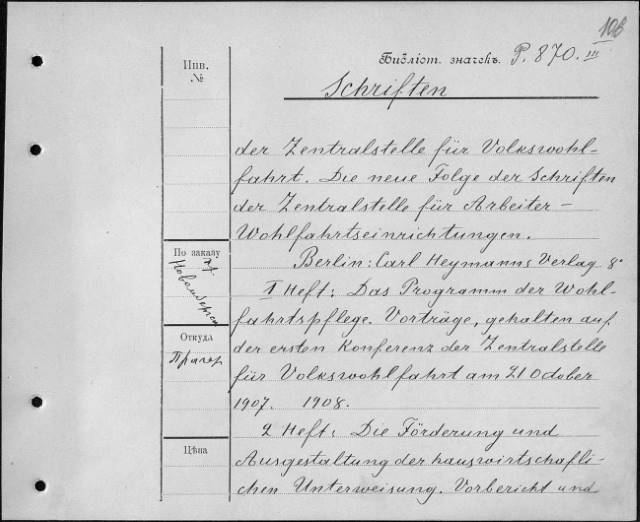 106
Библіот. значекъ. P. 870. III
Инв.
№
Schriften
der Zentralstelle für Volkswohl-
fahrt. Die neue Folge der Schriften
der Zentralstelle für Arbeiter-
Wohlfahrtseinrichtungen.
По заказу
Berlin: Carl Heymanns Verlag 8°
I Heft: Das Programm der Wohl-
fahrtspflege. Vorträge, gehalten auf
Откуда
der ersten Konferenz der Zentralstelle
Прагер
für Volkswohlfahrt am 21 Odober
1907. 1908.
2 Heft: Die Förderung und
Цѣна
Ausgestaltung der hauswirtschaftli-
chen Unterweisung. Vorbericht und